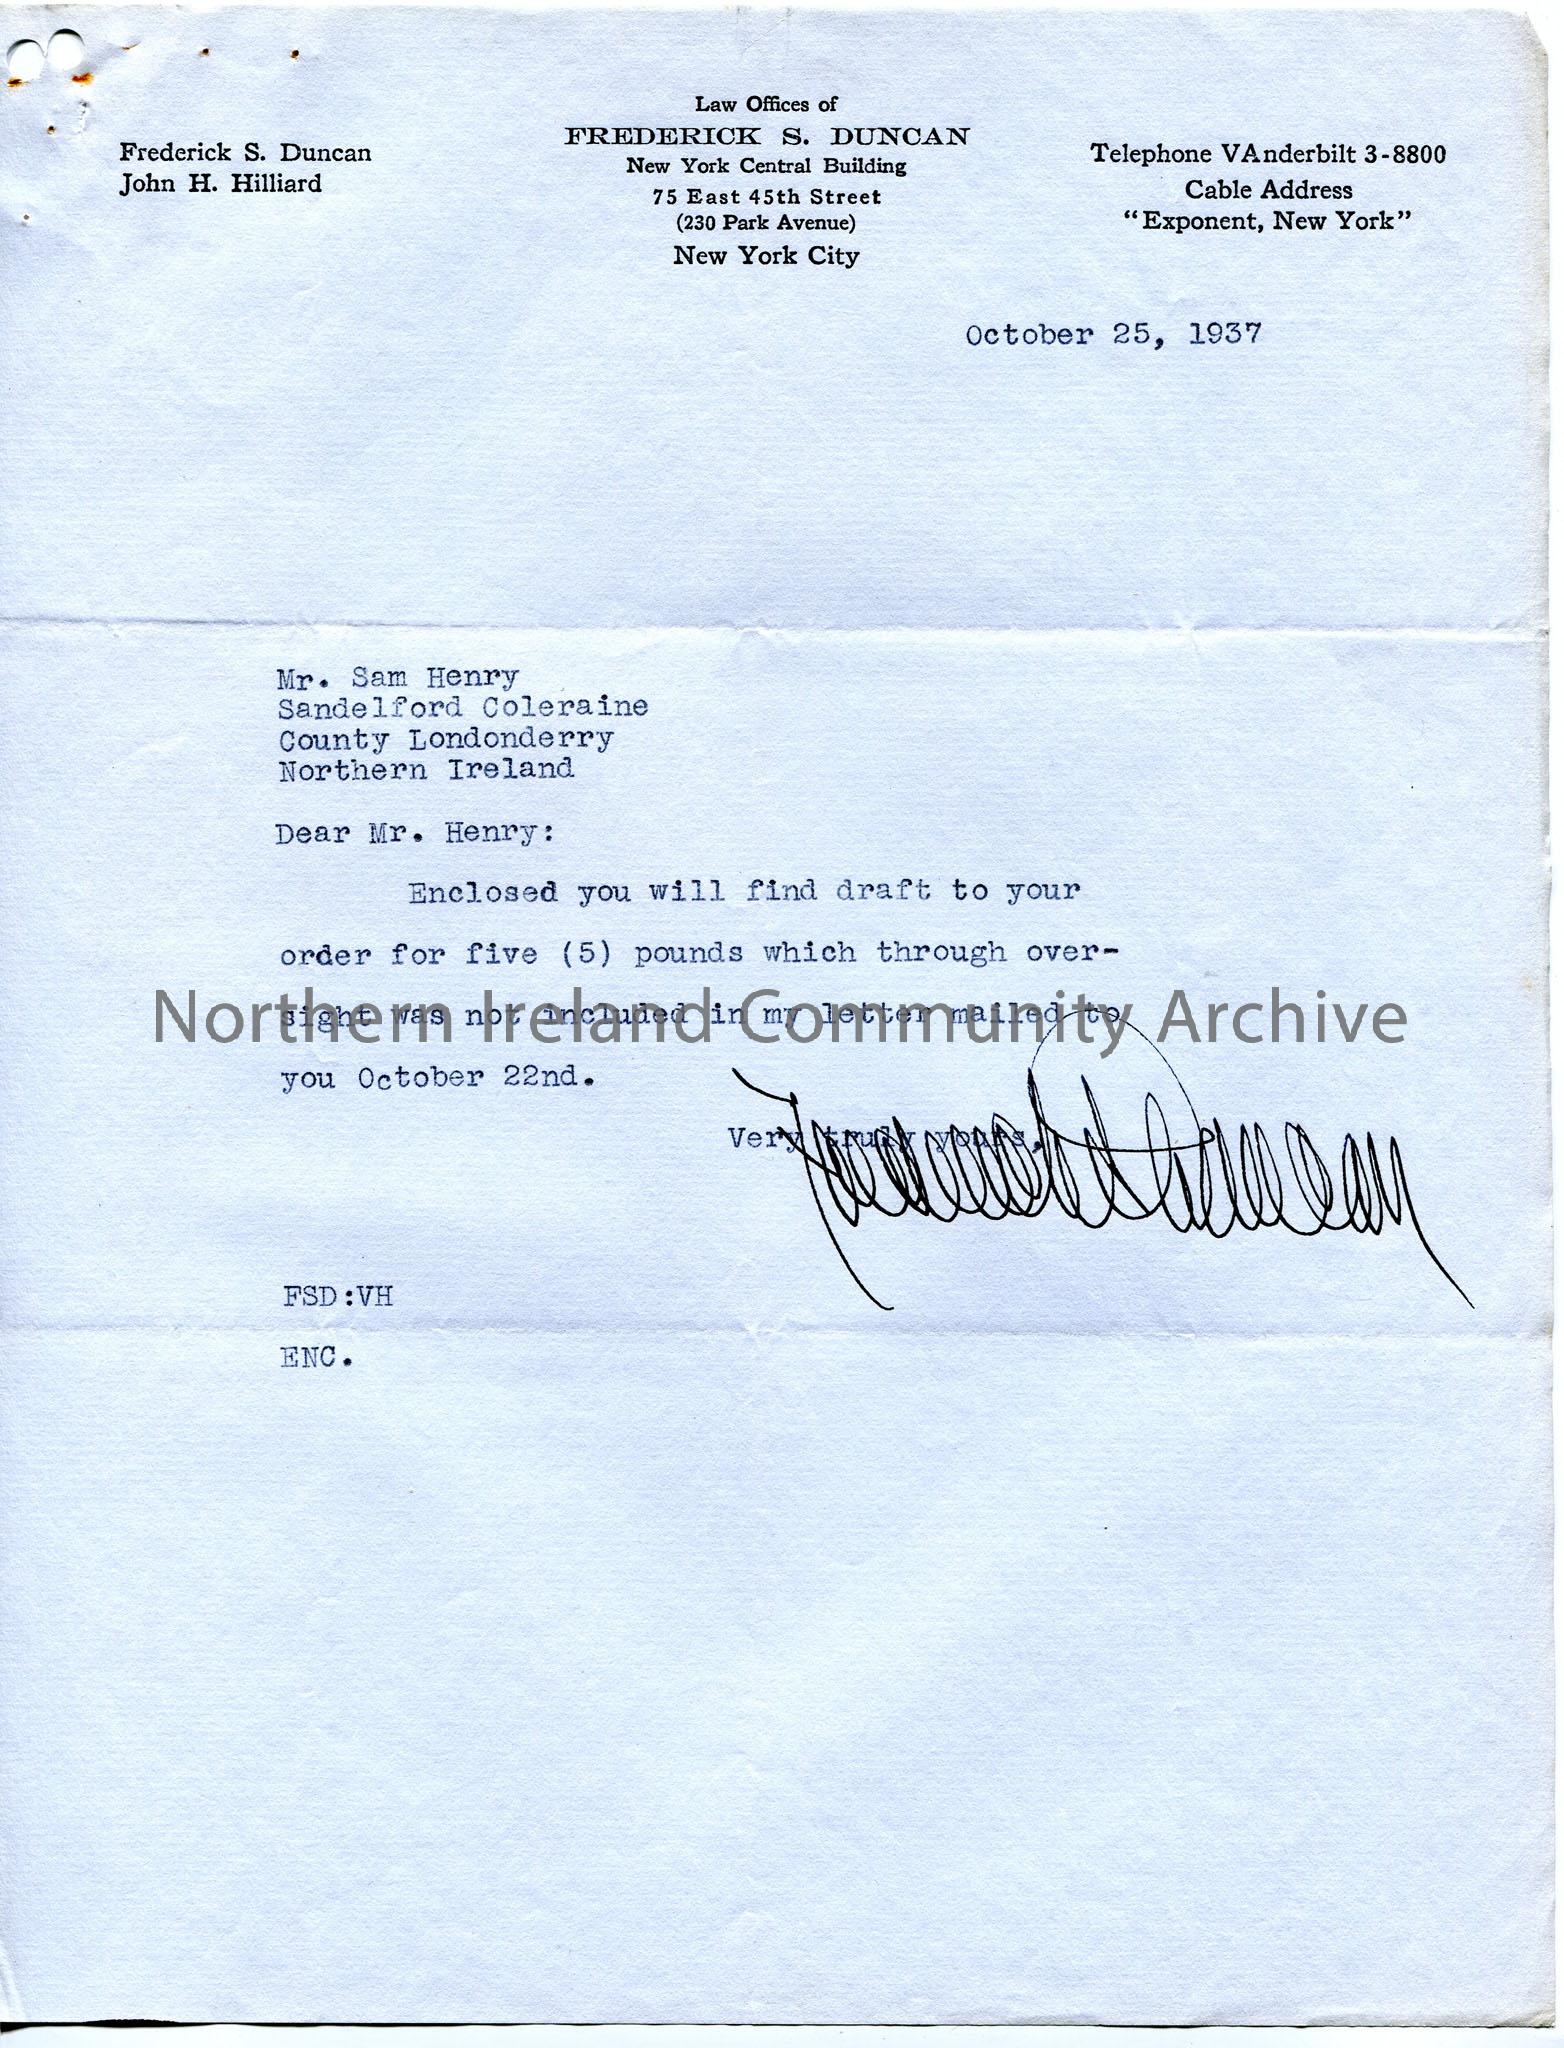 Law Offices of
FREDERICK S. DUNCAN
New York Central Building
75 East 45th Street
(230 Park Avenue)
New York City
Frederick S. Duncan
John H. Hilliard
Telephone VAnderbilt 3-8800
Cable Address
“Exponent, New York”
October 25, 1937
Mr. Sam Henry
Sandelford Coleraine
County Londonderry
Northern Ireland
Dear Mr. Henry:
Enclosed you will find draft to your
order for five (5) pounds which through over-
sight was not included in my letter mailed to
Northern Ireland Community Archive
you October 22nd.
Very truly yours,
Frederick S. Duncan
FSD:VH
ENC.